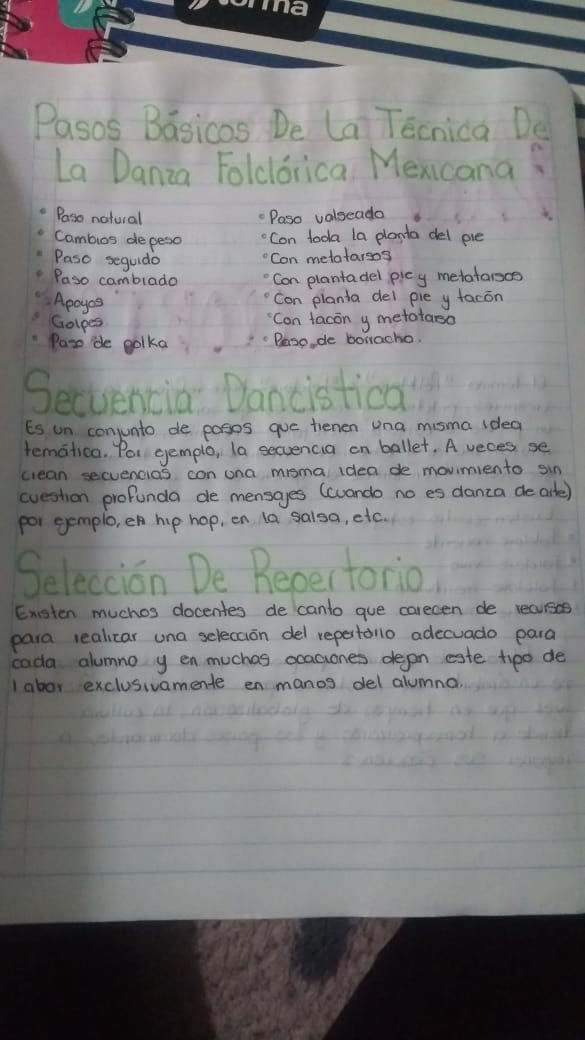 orma
Pasos Básicos De La Técnica De
La Danza Folclórica Mexicana
• Paso natural
• Cambios de peso
• Paso seguido
• Paso cambiado
• Apoyos
• Golpes
• Paso de polka
• Paso valseado
• Con toda la planta del pie
• Con metatarsos
• Con planta del pie y metatarsos
• Con planta del pie y tacón
• Con tacón y metatarso
• Paso de borracho.
Secuencia Dancistica
Es un conjunto de pasos que tienen una misma idea
temática. Por ejemplo, la secuencia en ballet. A veces se
crean secuencias con una misma idea de movimiento sin
cuestion profunda de mensajes (cuando no es danza de arte)
por ejemplo, en hip hop, en la salsa, etc.
Selección De Repertorio
Existen muchos docentes de canto que carecen de recursos
para realizar una selección del repertorio adecuado para
cada alumno y en muchas ocaciones dejan este tipo de
labor exclusivamente en manos del alumno.